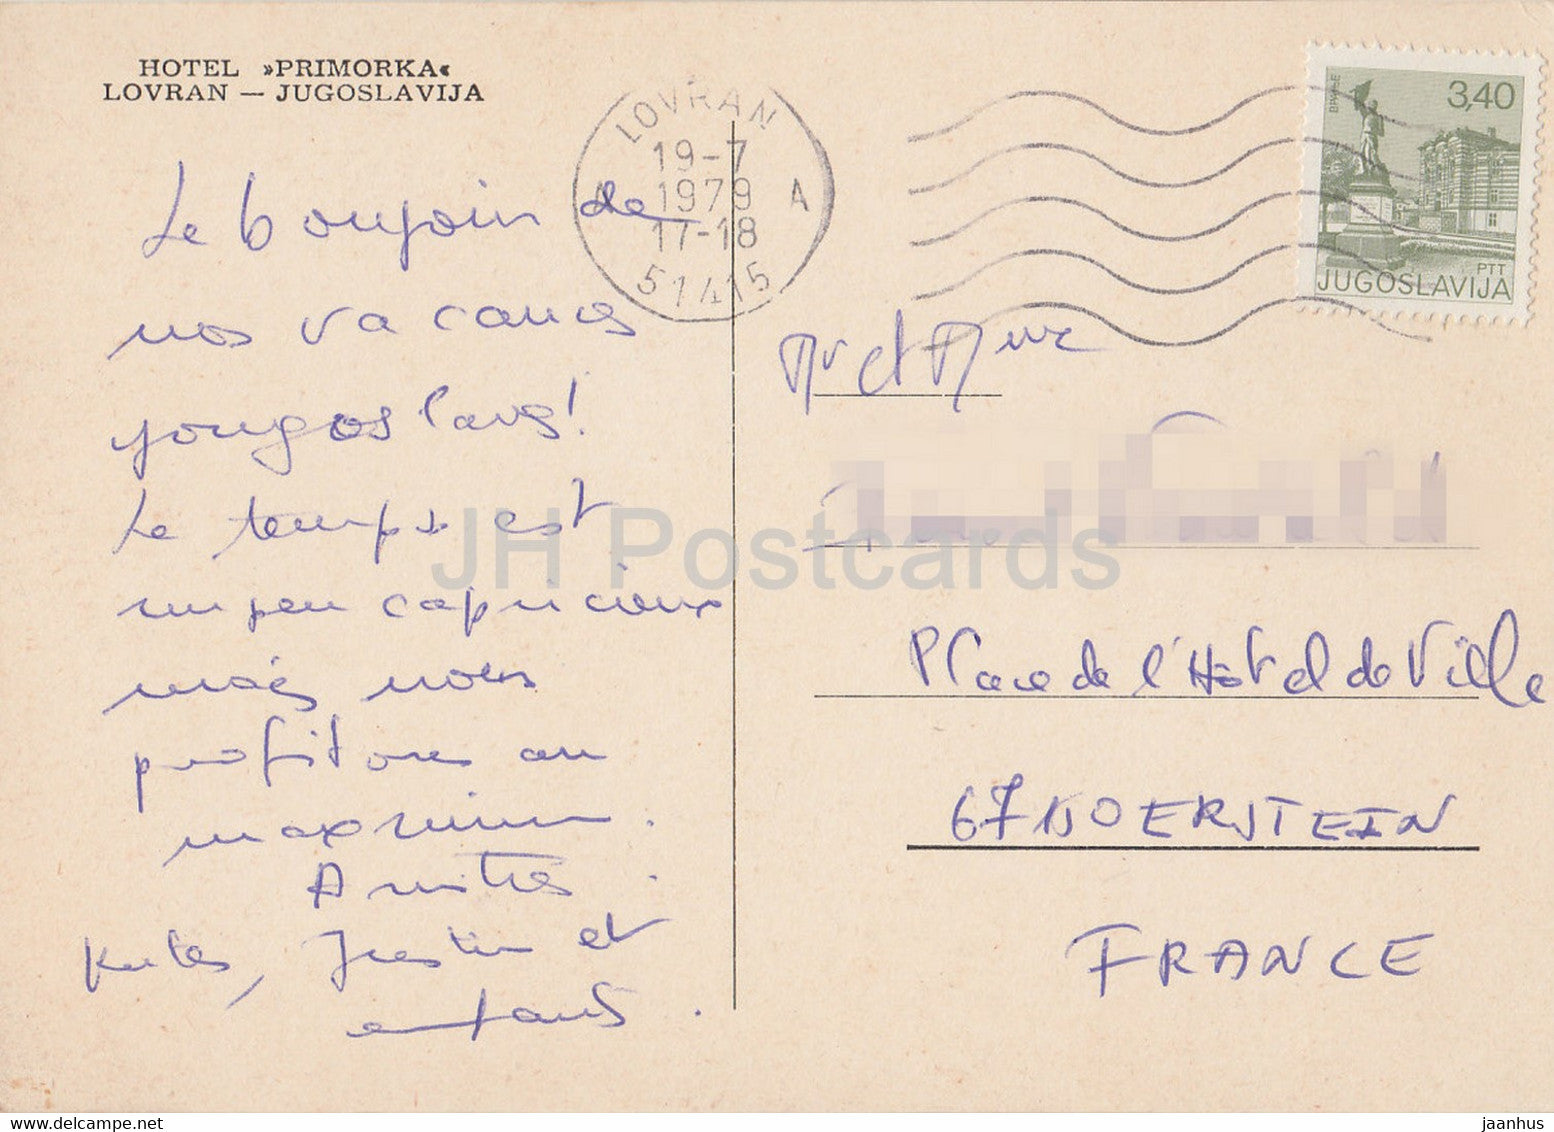 HOTEL »PRIMORKA«
LOVRAN — JUGOSLAVIJA
LOVRAN
19-7
1979
17-18
A
51415
ВРАЊЕ
3,40
PTT
JUGOSLAVIJA
Le bonjour de
nos vacances
yougoslaves!
Le temps est
un peu capricieux
mais nous
profitons au
maximum.
Amitiés.
et
enfants.
Mr et Mme
Place de l'Hôtel de Ville
67
FRANCE
JH Postcards
delcampe.net
jaanhus